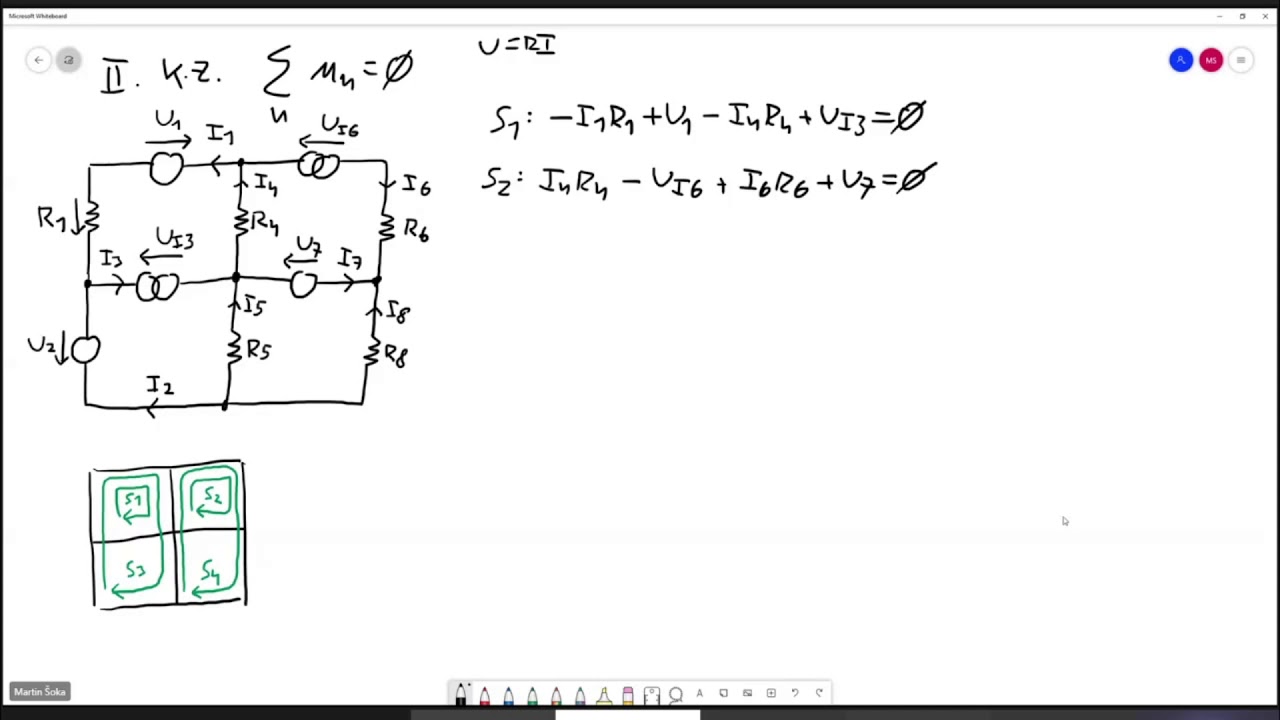 Microsoft Whiteboard
MS
U=RI
II. K.Z. ∑ u_n=∅
n
S1: -I1R1+U1-I4R4+UI3=∅
S2: I4R4-UI6+I6R6+U7=∅
U1
I1
UI6
I4
I6
R1
R4
R6
I3
UI3
U7
I7
I5
I8
U2
R5
R8
I2
S1
S2
S3
S4
Martin Šoka
A